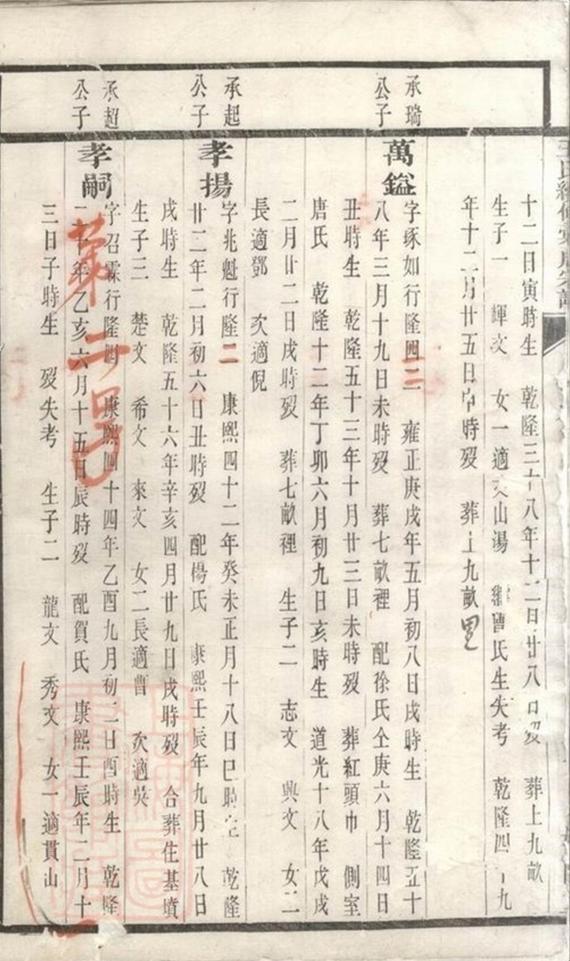 十二日寅時生 乾隆三十八年十二日廿八日歿 葬上九畝
生子一 輝文 女一適 山湯 曹氏生失考 乾隆四 九
年十二月廿五日 時歿 葬上九畝里
承瑞公子
萬鎰
字琢如行隆四二 雍正庚戌年五月初八日戌時生 乾隆五十
八年三月十九日未時歿 葬七畝裡 配徐氏仝庚六月十四日
丑時生 乾隆五十三年十月廿三日未時歿 葬紅頭巾 側室
唐氏 乾隆十二年丁卯六月初九日亥時生 道光十八年戊戌
二月廿二日戌時歿 葬七畝裡 生子二 志文 興文 女二
長適鄧 次適倪
承起公子
孝揚
字兆魁行隆二 康熙四十二年癸未正月十八日巳時生 乾隆
廿二年二月初六日丑時歿 配楊氏 康熙壬辰年九月廿八日
戌時生 乾隆五十六年辛亥四月廿九日戌時歿 合葬住基墳
生子三 楚文 希文 來文 女二長適曹 次適吳
承超公子
孝嗣
字召霖行隆四 康熙四十四年乙酉九月初二日酉時生 乾隆
二十年乙亥六月十五日辰時歿 配賀氏 康熙壬辰年二月十
三日子時生 歿失考 生子二 龍文 秀文 女一適貫山
第一号